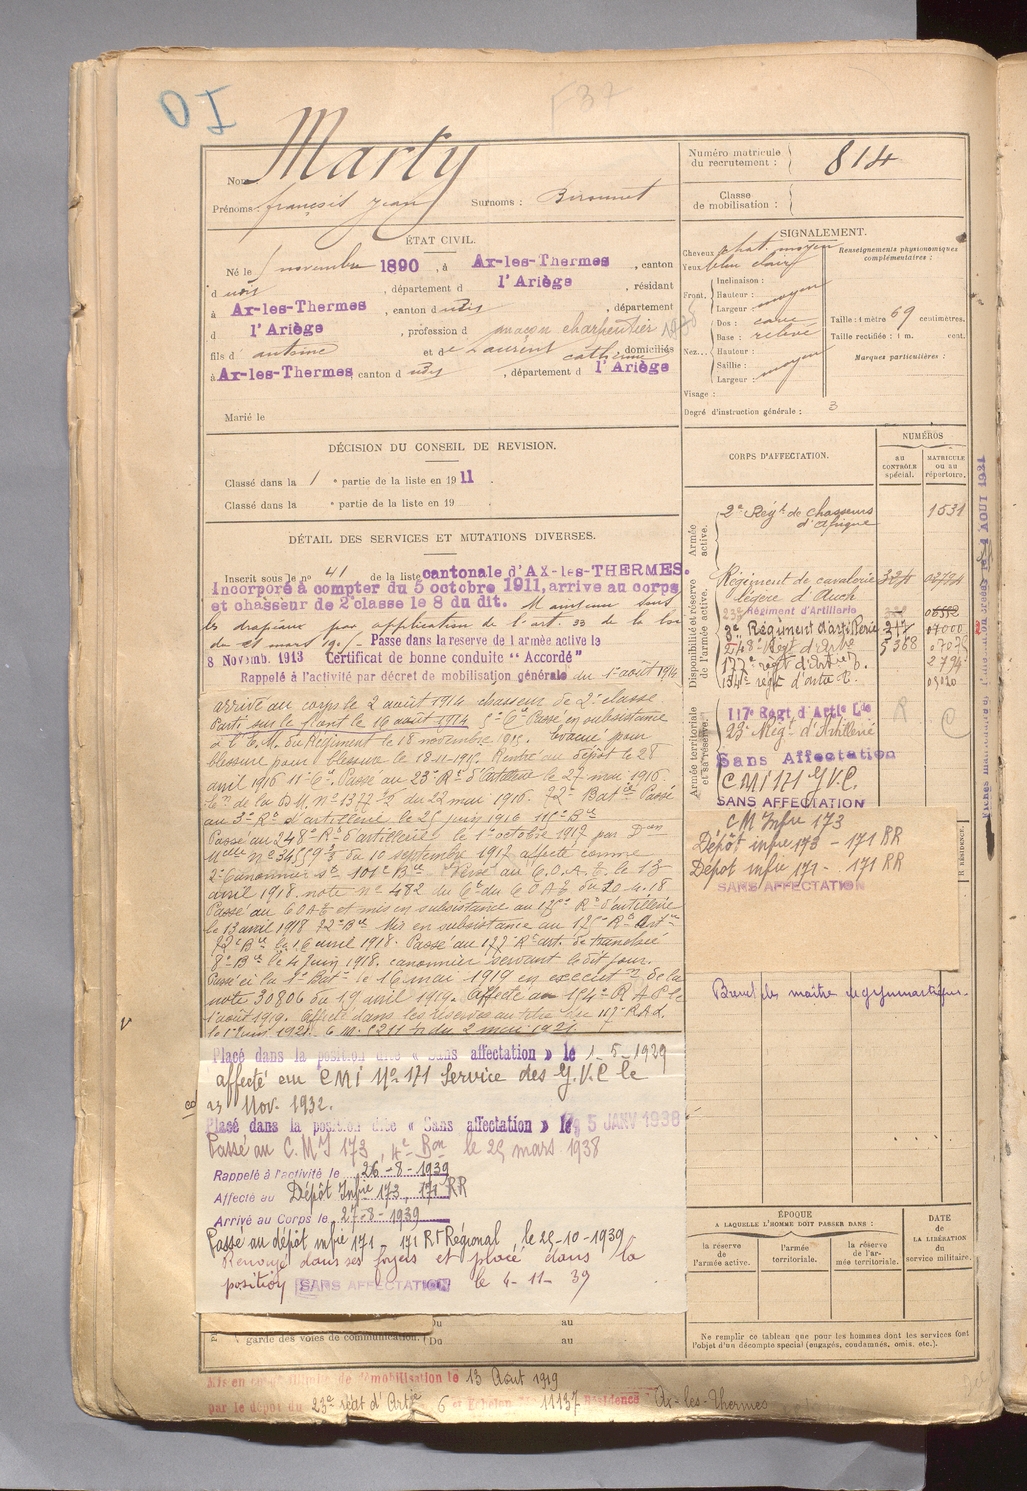 OI
F 37
Nom: Marty
Prénoms: françois Jean Surnoms:
Numéro matricule du recrutement : 814
Classe de mobilisation :
ÉTAT CIVIL.
Né le novembre 1890, à Ax-les-Thermes, canton
d udis, département d l'Ariège, résidant
à Ax-les-Thermes, canton d udis, département
d l'Ariège, profession d maçon charpentier
fils d' antoine et de Laurent catherine domiciliés
à Ax-les-Thermes canton d udis, département d l'Ariège
Marié le
SIGNALEMENT.
Cheveux chat. moyen
Yeux bleu clair
Front. Inclinaison :
Hauteur : moyen
Largeur :
Nez... Dos : cave
Base : relevé
Hauteur :
Saillie : moyen
Largeur :
Visage :
Renseignements physionomiques complémentaires :
Taille : 1 mètre 69 centimètres.
Taille rectifiée : 1 m. cent.
Marques particulières :
Degré d'instruction générale : 3
DÉCISION DU CONSEIL DE REVISION.
Classé dans la 1 e partie de la liste en 1911.
Classé dans la e partie de la liste en 19 .
DÉTAIL DES SERVICES ET MUTATIONS DIVERSES.
Inscrit sous le n° 41 de la liste cantonale d'AX-les-THERMES.
Incorporé à compter du 5 octobre 1911, arrive au corps
et chasseur de 2e classe le 8 du dit. Maintenu sous
les drapeaux par application de l'art. 33 de la loi
du 21 mars 190 Passé dans la reserve de l'armée active le
8 Novemb. 1913 Certificat de bonne conduite "Accordé"
Rappelé à l'activité par décret de mobilisation générale du 1er août 1914
arrivé au corps le 2 août 1914 chasseur de 2e classe
Parti sur le front le 16 août 1914 Passé en subsistance
à l'E.M. du Régiment le 18 novembre 1915. Evacué pour
blessure le 18-11-1915. Rentré au dépôt le 28
avril 1916 11e Cie. Passé au 23e Rt d'artillerie le 27 mai 1916.
on de la D.M. n° 1377 du 22 mai 1916. 72e Batie Passé
au 3e Rt d'artillerie le 25 juin 1916 Bie
Passé au 248e Rt d'artillerie le 1er octobre 1917 par Don
Melle n° du 10 septembre 1917 affecté comme
2e Canonnier sc 101e Bie Versé au C.O.A.E. le 13
avril 1918. note n° 482 du Ct du C O A E du 20.4.18
Passé au C O A E et mis en subsistance au 175e Rt d'artillerie
le 13 avril 1918 72e Bie Mis en subsistance au 175e Rt Artie
72e Bie le 16 avril 1918. Passé au 177e Rt art. de tranchée
8e Bie le 4 juin 1918. canonnier servant le dit jour.
Passé à la 1e Batie le 16 mai 1919 en exécuton de la
note 30806 du 19 avril 1919. Affecté au 154e R A P le
1 août 1919. Affecté dans les réserves au titre du 117e R.A.L.
le 1er Juin 1921. C.M. 6211 du 2 mai 1921
Placé dans la position dite « Sans affectation » le 1-5-1929
affecté au CMI N° 171 Service des G.V.C le
23 Nov. 1932.
Placé dans la position dite « Sans affectation » le 5 JANV 1938
Passé au C.M.I 173, 4e Bon le 25 mars 1938
Rappelé à l'activité le 26-8-1939
Affecté au Dépôt Infie 173, 171 RR
Arrivé au Corps le 27-8-1939
Passé au dépôt infie 171 - 171 Rt Régional, le 25-10-1939
Renvoyé dans ses foyers et placé dans la
position SANS AFFECTATION le 4-11-39
CORPS D'AFFECTATION.
NUMÉROS
au CONTRÔLE spécial.
MATRICULE ou au répertoire.
Armée active.
2e Régt de chasseurs d'afrique 1531
Disponibilité et réserve de l'armée active.
Régiment de cavalerie légère d'Auch
23e Régiment d'Artillerie
3e Régiment d'artillerie
248e Régt d'Artie 5368
177e régt d'artie
154e régt d'artie
Armée territoriale et sa réserve.
117e Régt d'Artie Lde
23e Régt d'Artillerie
Sans Affectation
CMI 171 G.V.C.
SANS AFFECTATION
CM Infie 173
Dépôt infie 173 - 171 RR
Dépot infie 171 - 171 RR
SANS AFFECTATION
Brevet de maître de gymnastique.
ÉPOQUE
A LAQUELLE L'HOMME DOIT PASSER DANS :
la réserve de l'armée active.
l'armée territoriale.
la réserve de l'armée territoriale.
DATE de LA LIBÉRATION du service militaire.
Ne remplir ce tableau que pour les hommes dont les services font l'objet d'un décompte spécial (engagés, condamnés, omis, etc.).
Du au
à garde des voies de communication. Du au
Mis en congé illimité de démobilisation le 13 Aout 1919
par le dépôt du 23e régt d'Artie 6e Echelon 11137 Résidence Ax-les-Thermes